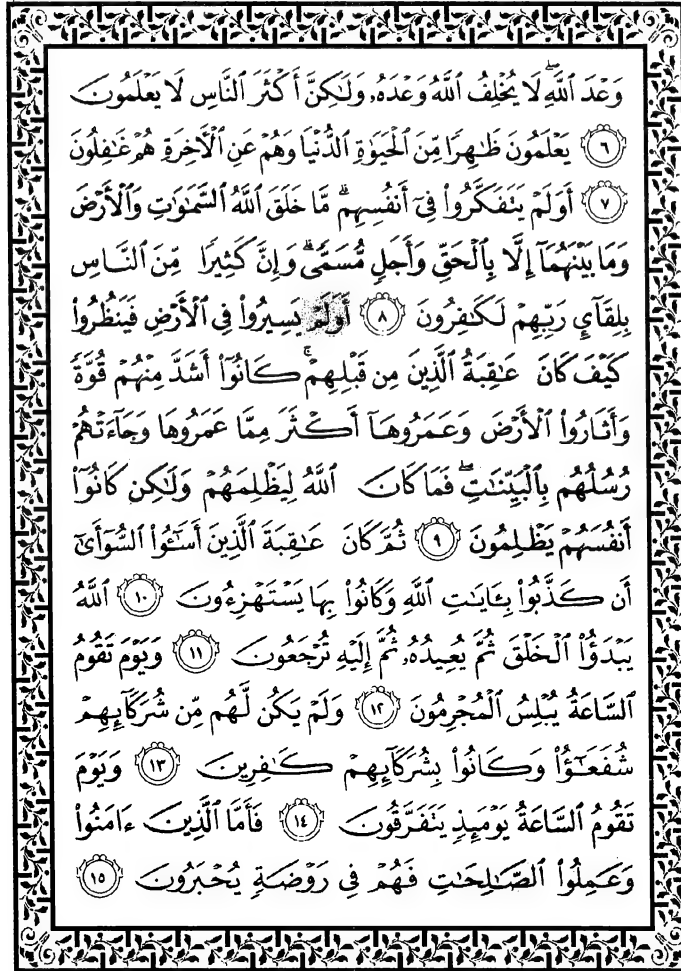 وَعْدَ ٱللَّهِۖ لَا يُخْلِفُ ٱللَّهُ وَعْدَهُۥ وَلَـٰكِنَّ أَكْثَرَ ٱلنَّاسِ لَا يَعْلَمُونَ
﴿٦﴾ يَعْلَمُونَ ظَـٰهِرًا مِّنَ ٱلْحَيَوٰةِ ٱلدُّنْيَا وَهُمْ عَنِ ٱلْـَٔاخِرَةِ هُمْ غَـٰفِلُونَ
﴿٧﴾ أَوَلَمْ يَتَفَكَّرُوا۟ فِىٓ أَنفُسِهِمۗ مَّا خَلَقَ ٱللَّهُ ٱلسَّمَـٰوَٰتِ وَٱلْأَرْضَ
وَمَا بَيْنَهُمَآ إِلَّا بِٱلْحَقِّ وَأَجَلٍ مُّسَمًّىۗ وَإِنَّ كَثِيرًا مِّنَ ٱلنَّاسِ
بِلِقَآئِ رَبِّهِمْ لَكَـٰفِرُونَ ﴿٨﴾ أَوَلَمْ يَسِيرُوا۟ فِى ٱلْأَرْضِ فَيَنظُرُوا۟
كَيْفَ كَانَ عَـٰقِبَةُ ٱلَّذِينَ مِن قَبْلِهِمْۚ كَانُوٓا۟ أَشَدَّ مِنْهُمْ قُوَّةً
وَأَثَارُوا۟ ٱلْأَرْضَ وَعَمَرُوهَآ أَكْثَرَ مِمَّا عَمَرُوهَا وَجَآءَتْهُمْ
رُسُلُهُم بِٱلْبَيِّنَـٰتِۖ فَمَا كَانَ ٱللَّهُ لِيَظْلِمَهُمْ وَلَـٰكِن كَانُوٓا۟
أَنفُسَهُمْ يَظْلِمُونَ ﴿٩﴾ ثُمَّ كَانَ عَـٰقِبَةَ ٱلَّذِينَ أَسَـٰٓـُٔوا۟ ٱلسُّوٓأَىٰٓ
أَن كَذَّبُوا۟ بِـَٔايَـٰتِ ٱللَّهِ وَكَانُوا۟ بِهَا يَسْتَهْزِءُونَ ﴿١٠﴾ ٱللَّهُ
يَبْدَؤُا۟ ٱلْخَلْقَ ثُمَّ يُعِيدُهُۥ ثُمَّ إِلَيْهِ تُرْجَعُونَ ﴿١١﴾ وَيَوْمَ تَقُومُ
ٱلسَّاعَةُ يُبْلِسُ ٱلْمُجْرِمُونَ ﴿١٢﴾ وَلَمْ يَكُن لَّهُم مِّن شُرَكَآئِهِمْ
شُفَعَـٰٓؤُا۟ وَكَانُوا۟ بِشُرَكَآئِهِمْ كَـٰفِرِينَ ﴿١٣﴾ وَيَوْمَ
تَقُومُ ٱلسَّاعَةُ يَوْمَئِذٍ يَتَفَرَّقُونَ ﴿١٤﴾ فَأَمَّا ٱلَّذِينَ ءَامَنُوا۟
وَعَمِلُوا۟ ٱلصَّـٰلِحَـٰتِ فَهُمْ فِى رَوْضَةٍ يُحْبَرُونَ ﴿١٥﴾